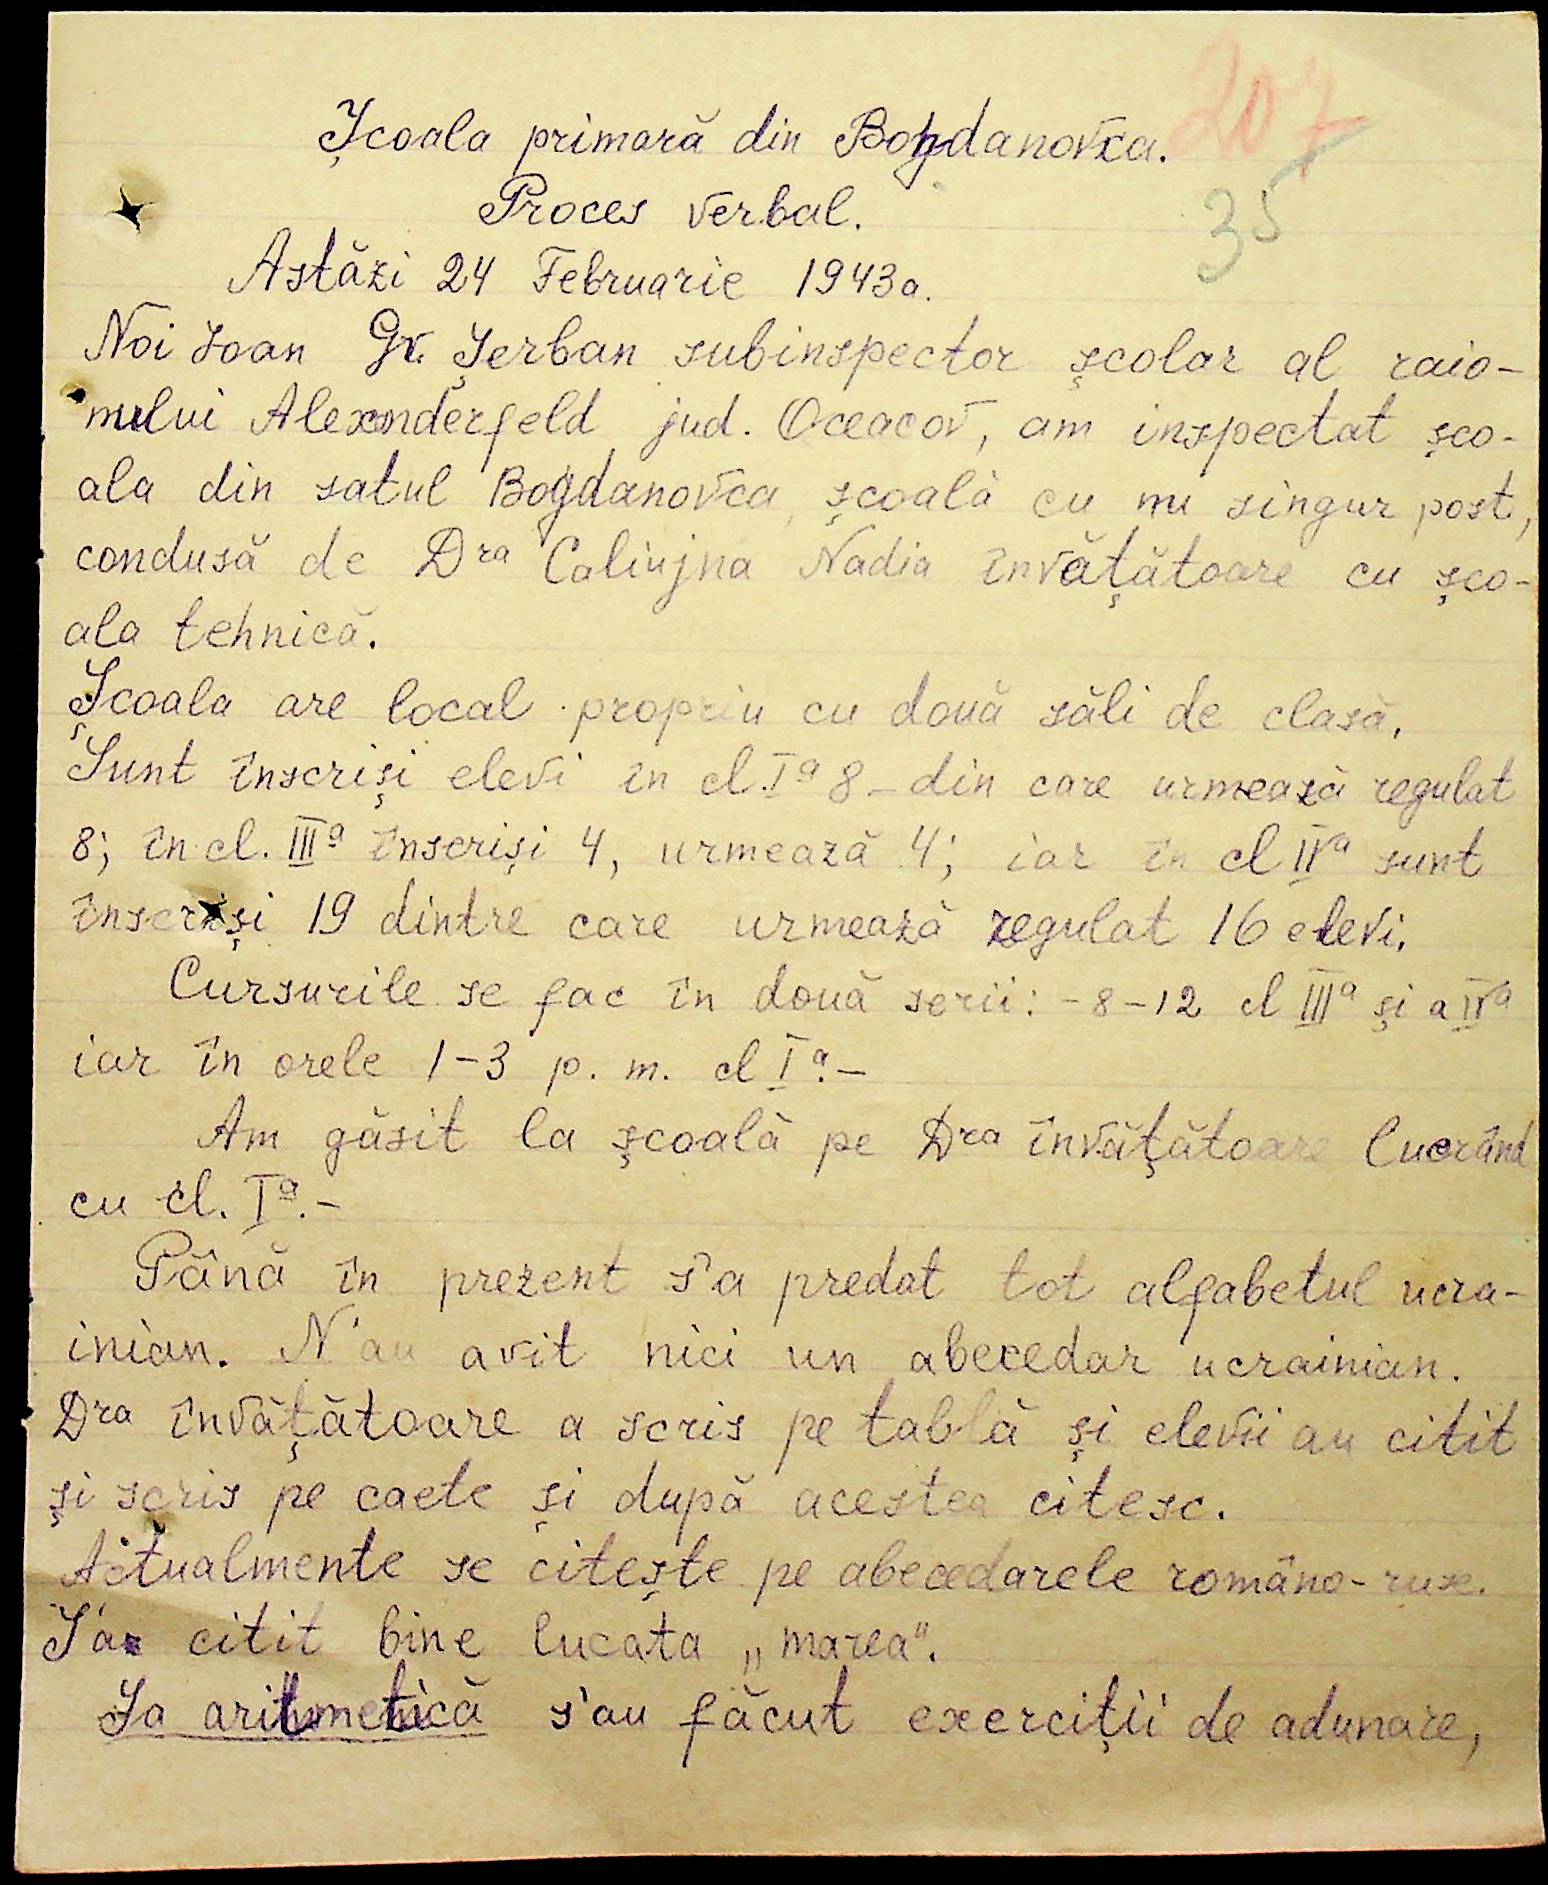 207
Școala primară din Bogdanovca.
35
Proces verbal.
Astăzi 24 Februarie 1943 a.
Noi Ioan Gr. Șerban subinspector școlar al raio-
nului Alexanderfeld jud. Oceacov, am inspectat șco-
ala din satul Bogdanovca, școală cu nu singur post,
condusă de Dra Caliujna Nadia învățătoare cu șco-
ala tehnică.
Școala are local propriu cu două săli de clasă.
Sunt înscriși elevi în cl. Iª 8 – din care urmează regulat
8; în cl. IIIª înscriși 4, urmează 4; iar în cl IVª sunt
înscriși 19 dintre care urmează regulat 16 elevi.
Cursurile se fac în două serii: – 8 – 12 cl IIIª și a IVª
iar în orele 1 – 3 p. m. cl Iª. –
Am găsit la școală pe Dra învățătoare lucrând
cu cl. Iª. –
Până în prezent s'a predat tot alfabetul ucra-
inian. N'au avit nici un abecedar ucrainian.
Dra învățătoare a scris pe tablă și elevii au citit
și scris pe caete și după acestea citesc.
Actualmente se citește pe abecedarele româno-ruse.
S'a citit bine lucata „marea".
La aritmetică s'au făcut exerciții de adunare,